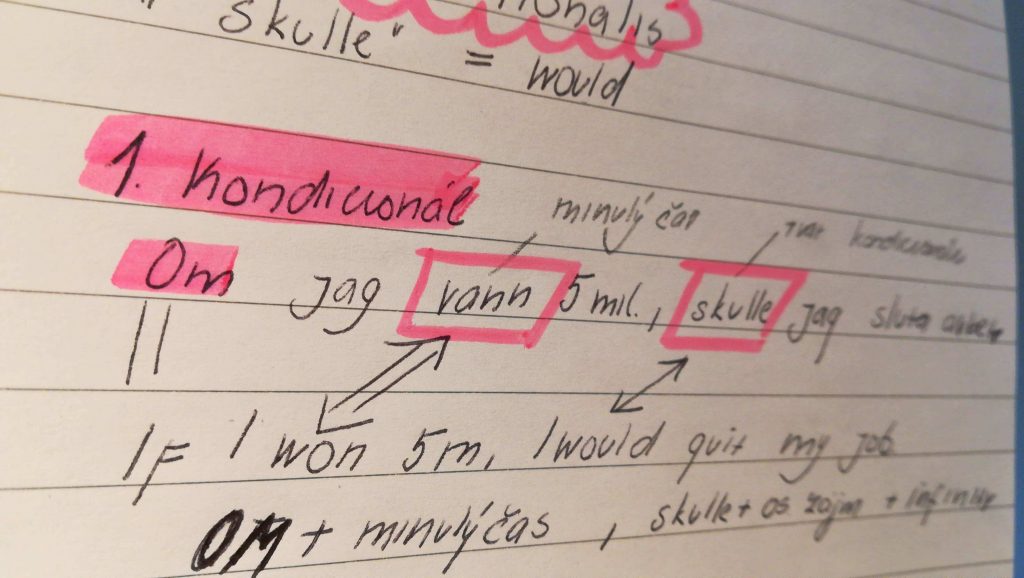 skulle" = would
1. Kondicionál
minulý čas tvar kondicionálu
Om jag vann 5 mil., skulle jag sluta
||
IF I won 5m, I would quit my job
OM + minulý čas, skulle + os zájm + infinitiv